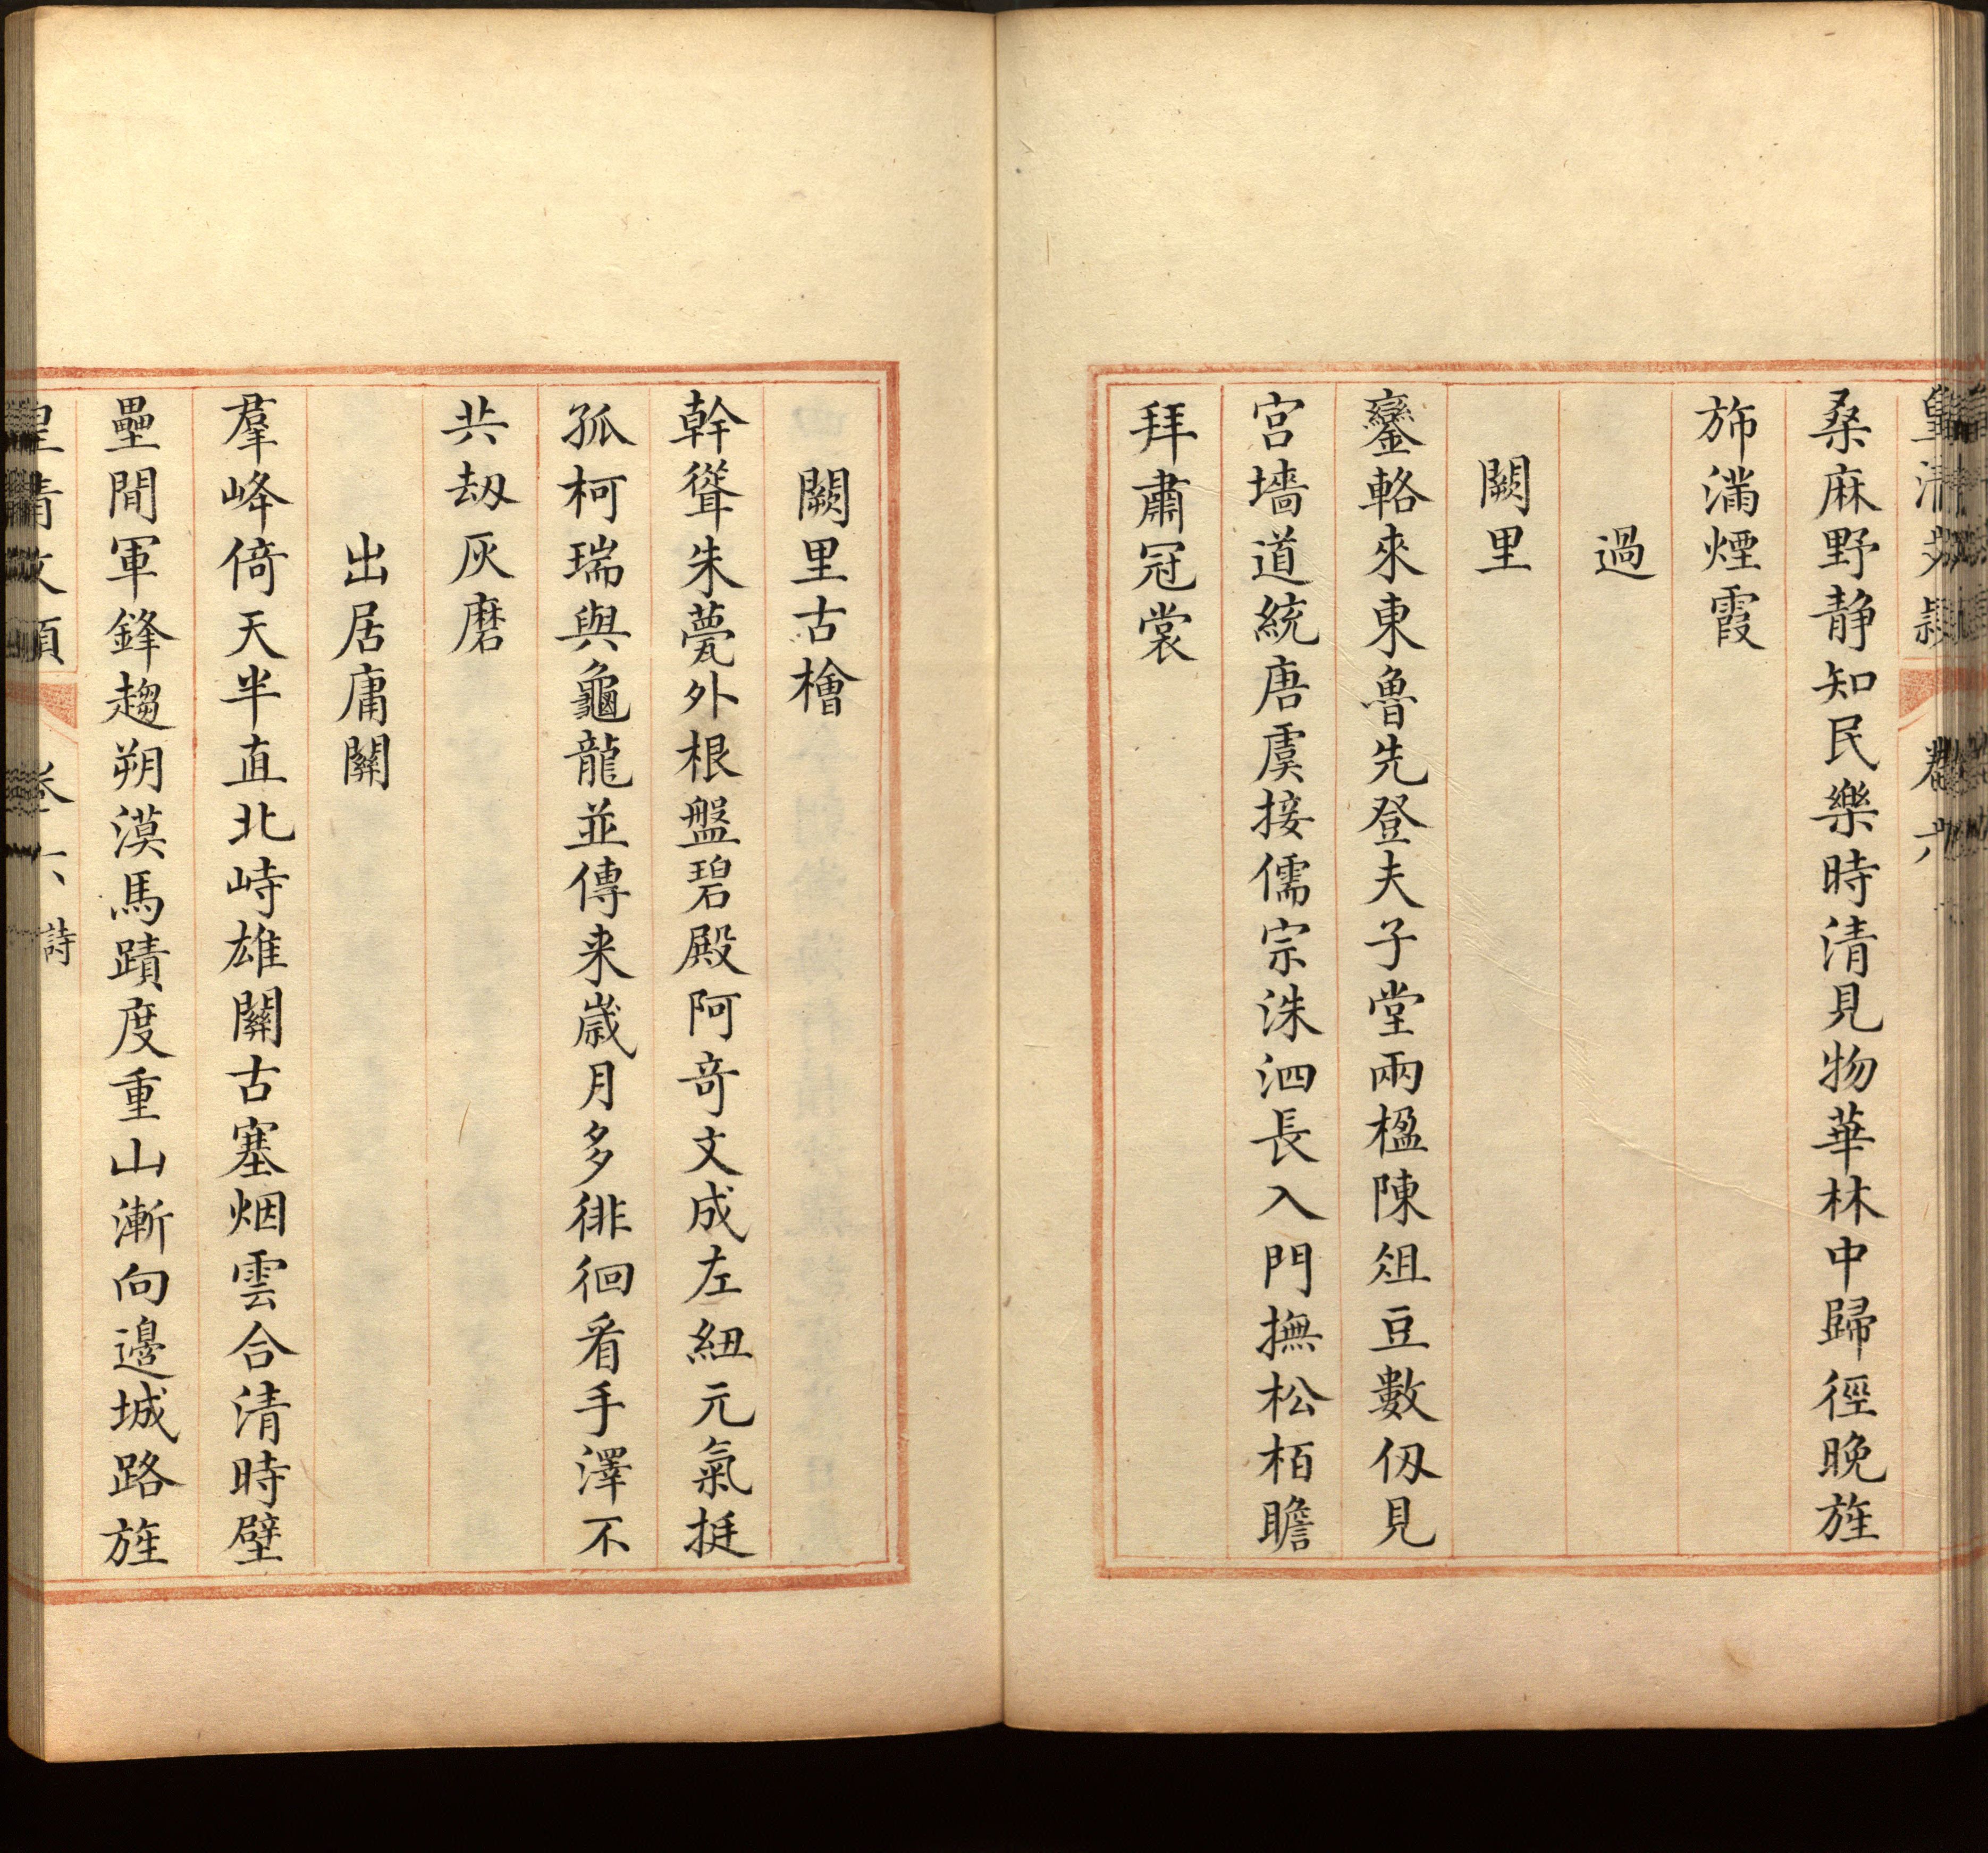 皇清文穎 卷六
桑麻野静知民樂時清見物華林中歸徑晚旌
斾滿煙霞
過
闕里
鑾輅來東魯先登夫子堂兩楹陳俎豆數仭見
宮墻道統唐虞接儒宗洙泗長入門撫松栢瞻
拜肅冠裳
闕里古檜
幹聳朱甍外根盤碧殿阿竒文成左紐元氣挺
孤柯瑞與龜龍並傳来歲月多徘徊看手澤不
共刼灰磨
出居庸關
羣峰倚天半直北峙雄關古塞烟雲合清時壁
壘間軍鋒趨朔漠馬蹟度重山漸向邊城路旌
皇清文穎 卷六 詩